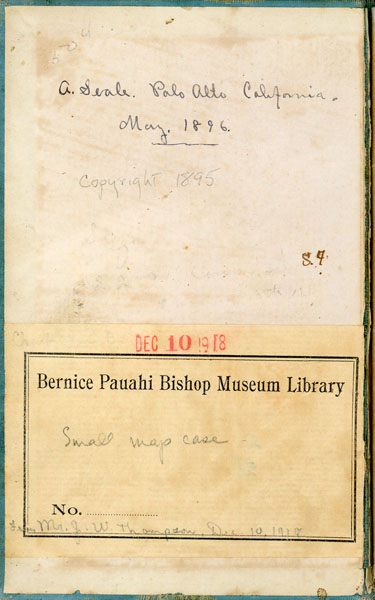 A. Seale. Palo Alto California.
May. 1896.
Copyright 1895
DEC 10 1918
Bernice Pauahi Bishop Museum Library
Small map case
No.
from Mr. J. W. Thompson, Dec 10, 1918